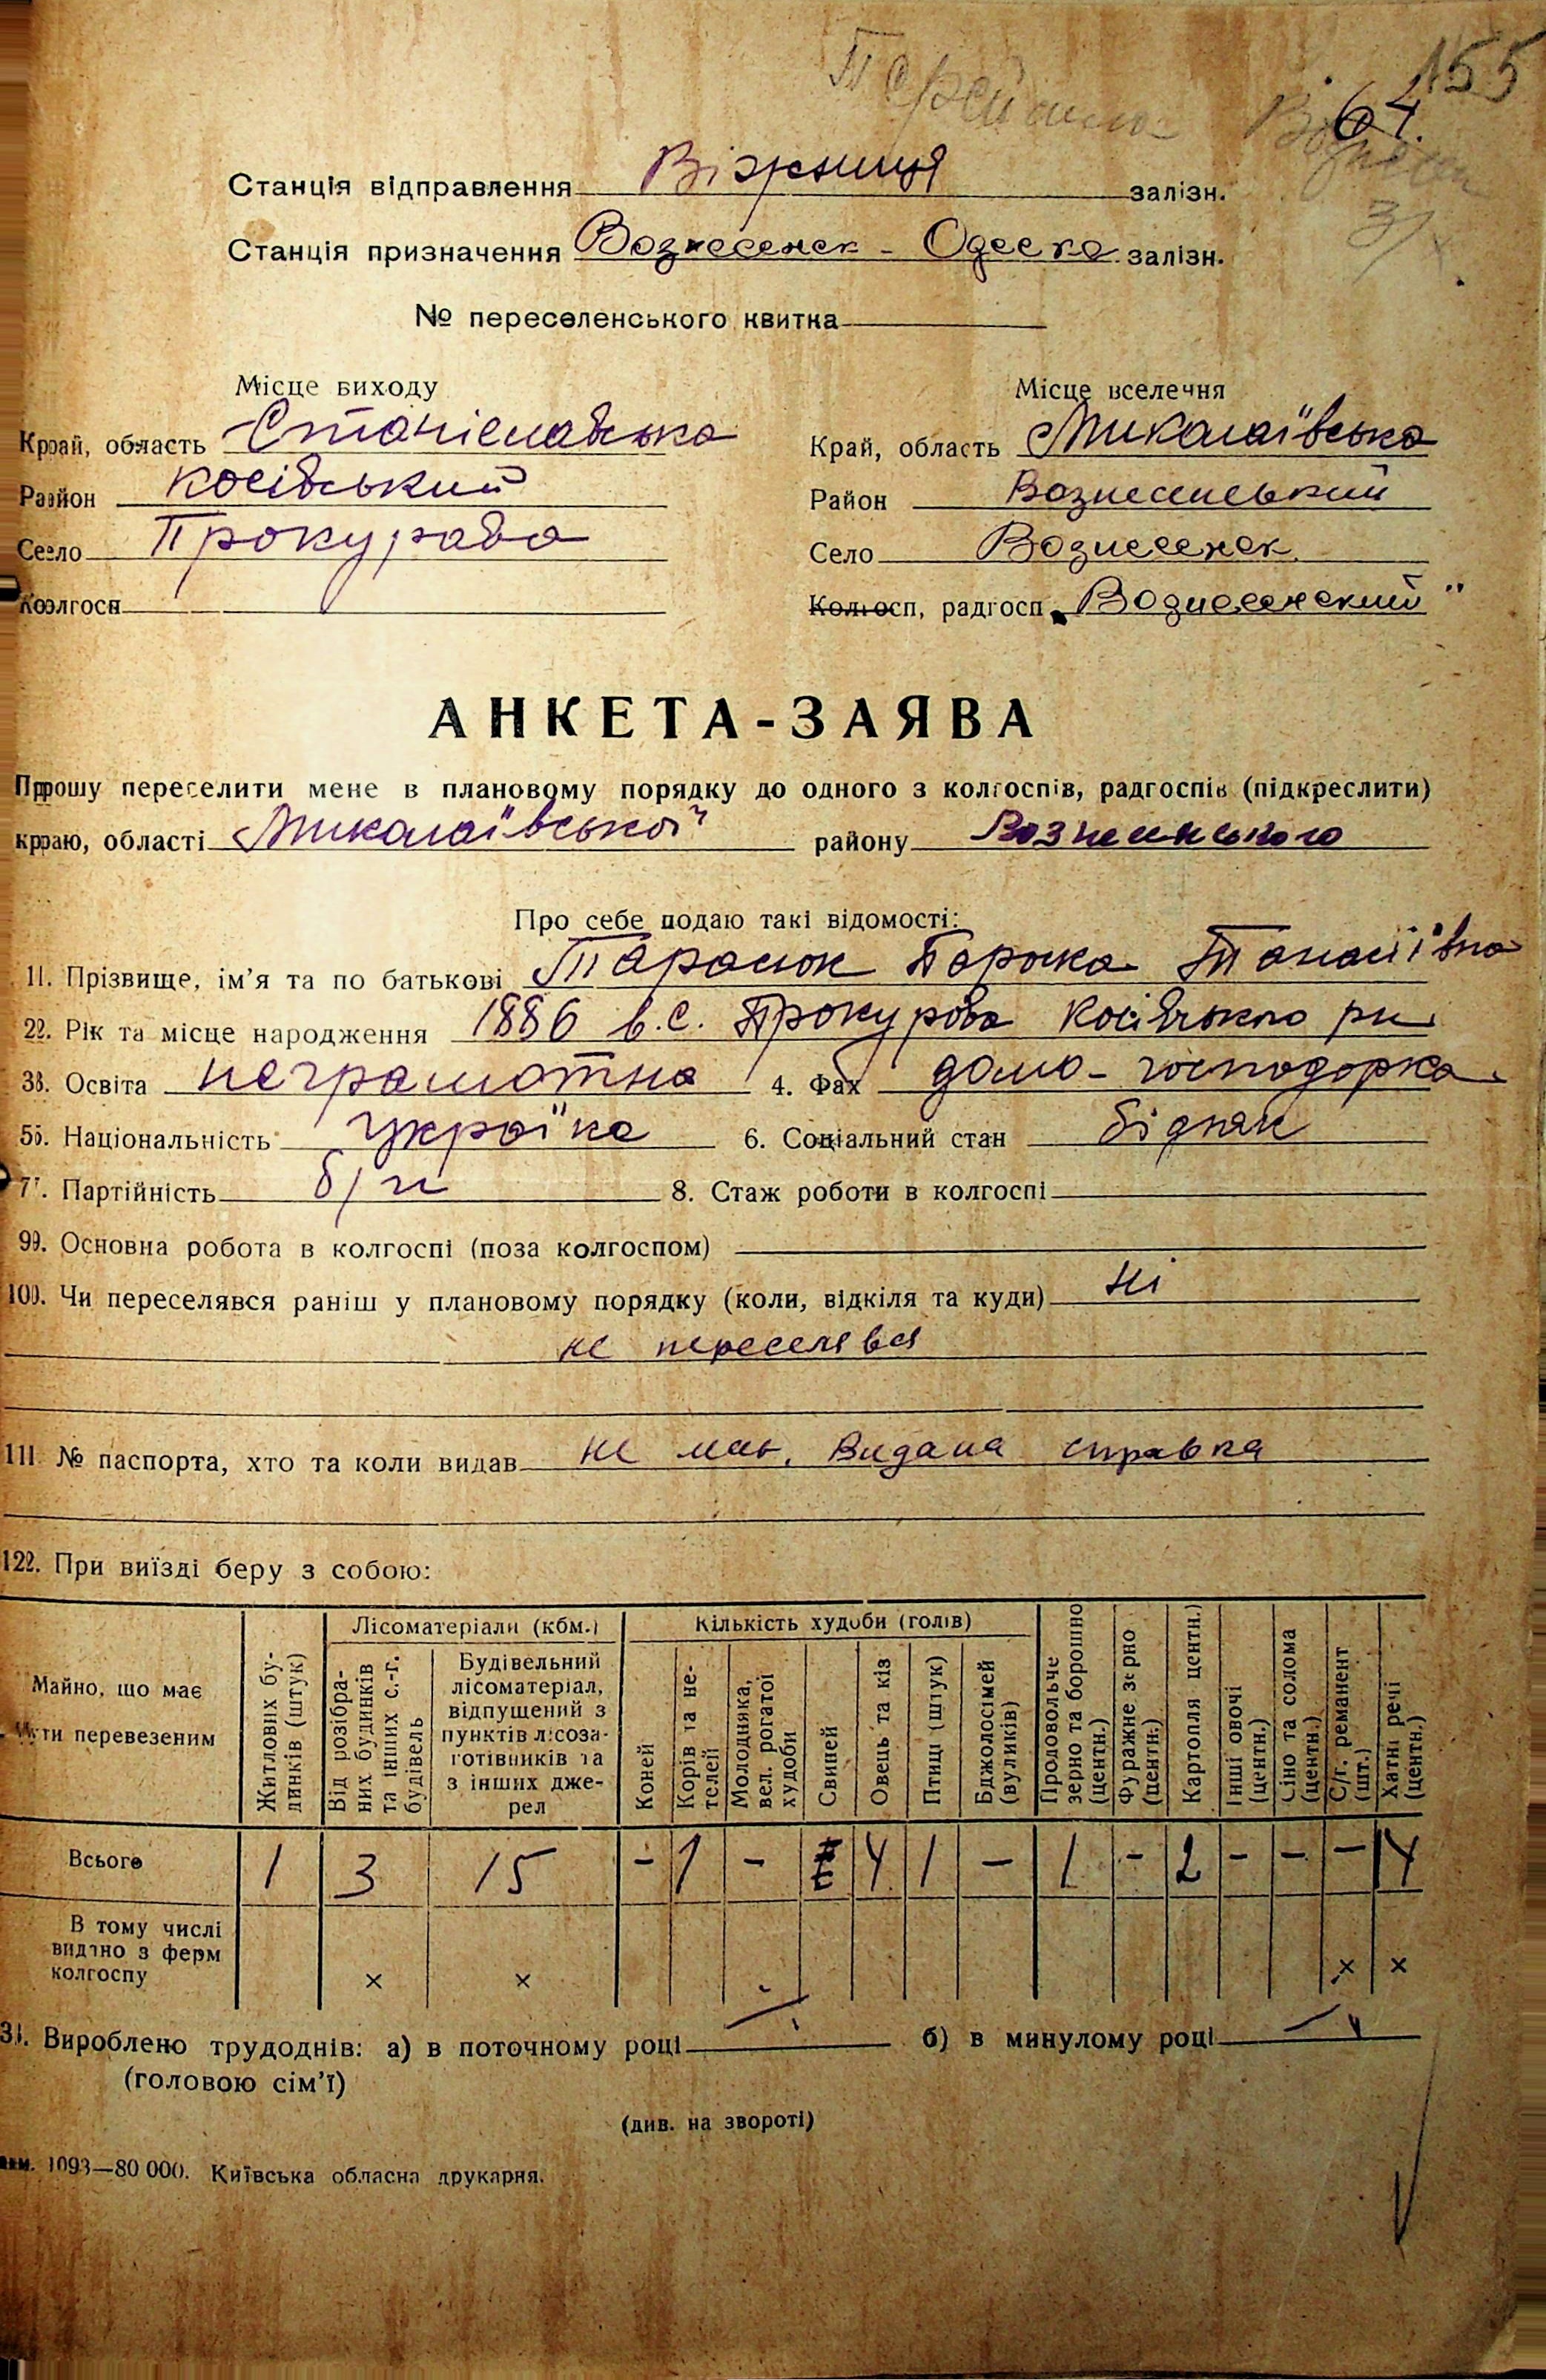 155
64.
Станція відправлення Віжниця залізн.
Станція призначення Вознесенск - Одеска залізн.
№ переселенського квитка
Місце виходу Місце вселення
Край, область Станіславська Край, область Миколаївська
Район Косівський Район Вознесенський
Село Прокурава Село Вознесенск
Колгосп Колгосп, радгосп „Вознесенский"
АНКЕТА-ЗАЯВА
Прошу переселити мене в плановому порядку до одного з колгоспів, радгоспів (підкреслити)
краю, області Миколаївської району Вознесенського
Про себе подаю такі відомості:
1. Прізвище, ім'я та по батькові Тарасюк Параска Танасіївна
2. Рік та місце народження 1886 в.с. Прокурова Косівського р-н
3. Освіта неграмотна 4. Фах домо-господорка
5. Національність Українка 6. Соціальний стан бідняк
7. Партійність б/п 8. Стаж роботи в колгоспі
9. Основна робота в колгоспі (поза колгоспом)
10. Чи переселявся раніш у плановому порядку (коли, відкіля та куди) Ні
не переселявся
11. № паспорта, хто та коли видав не має. Видана справка
12. При виїзді беру з собою:
Майно, що має бути перевезеним
Житлових будинків (штук)
Лісоматеріали (кбм.)
Від розібраних будинків та інших с.-г. будівель
Будівельний лісоматеріал, відпущений з пунктів лісозаготівників та з інших джерел
Кількість худоби (голів)
Коней
Корів та нетелей
Молодняка, вел. рогатої худоби
Свиней
Овець та кіз
Птиці (штук)
Бджолосімей (вуликів)
Продовольче зерно та борошно (центн.)
Фуражне зерно (центн.)
Картопля центн.)
Інші овочі (центн.)
Сіно та солома (центн.)
С/г. реманент (шт.)
Хатні речі (центн.)
Всього 1 3 15 - 1 - 4 1 - 1 - 2 - - - 4
В тому числі видано з ферм колгоспу × × × ×
3. Вироблено трудоднів: а) в поточному році — б) в минулому році —
(головою сім'ї)
(див. на звороті)
1093—80 000. Київська обласна друкарня.